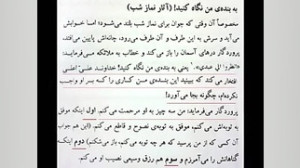 به بنده‌ی من نگاه کنید! (آثار نماز شب)
مخصوصاً آن وقتی که جوان برای نماز شب بلند می‌شود؛ اما خوابش
می‌آید و سرش به این طرف و آن طرف می‌رود، چانه‌اش پایین می‌افتد،
پروردگار درهای آسمان را باز می‌کند و خطاب به ملائکه می‌فرماید:
یعنی به بنده‌ی من نگاه کنید! خداوند
افتخار می‌کند که ببینید این بنده‌ی من کاری را که بر او واجب
نکرده‌ام، چگونه بجا می‌آورد!
پروردگار می‌فرماید: من سه چیز به او مرحمت می‌کنم. اول اینکه موفق
به توبه‌اش می‌کنم، موفق به توبه‌ی نصوح و قاطع می‌کنم.
دوم
گناهانش را می‌آمرزم و سوم هم رزق وسیعی نصیب او می‌کنم.